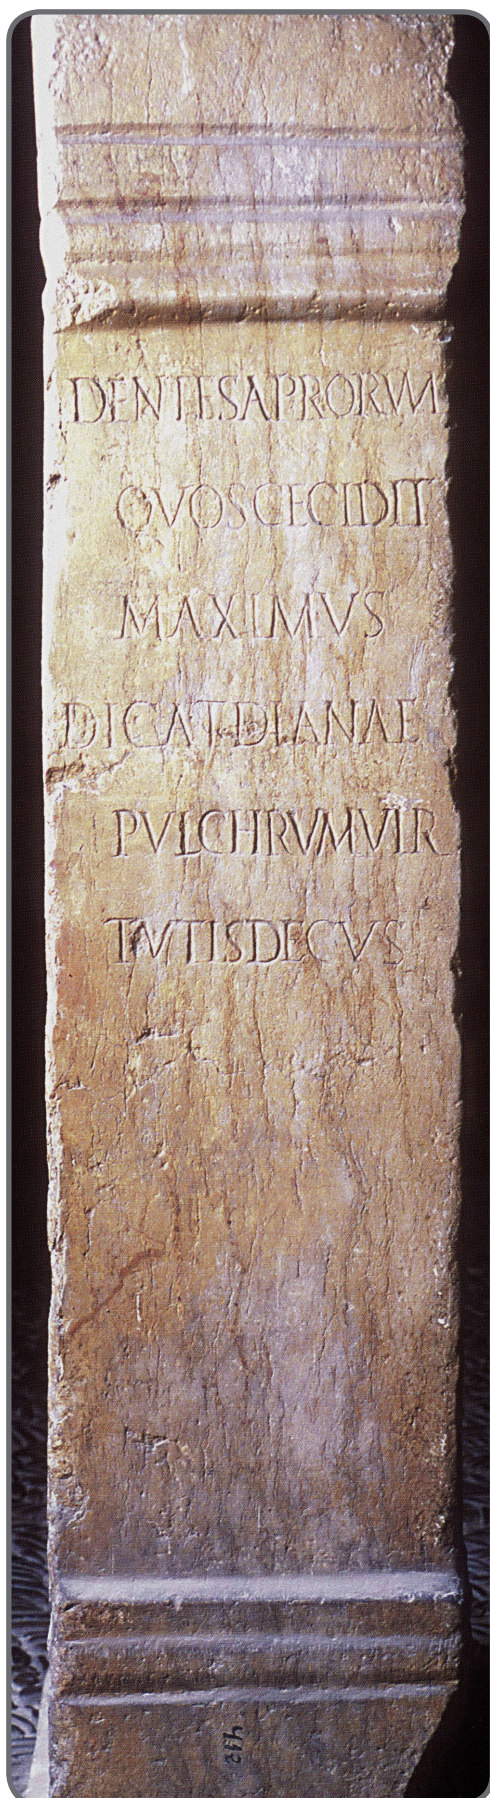 DENTESAPRORVM
QVOSCECIDIT
MAXIMVS
DICATDIANAE
PVLCHRVMVIR
TVTISDECVS